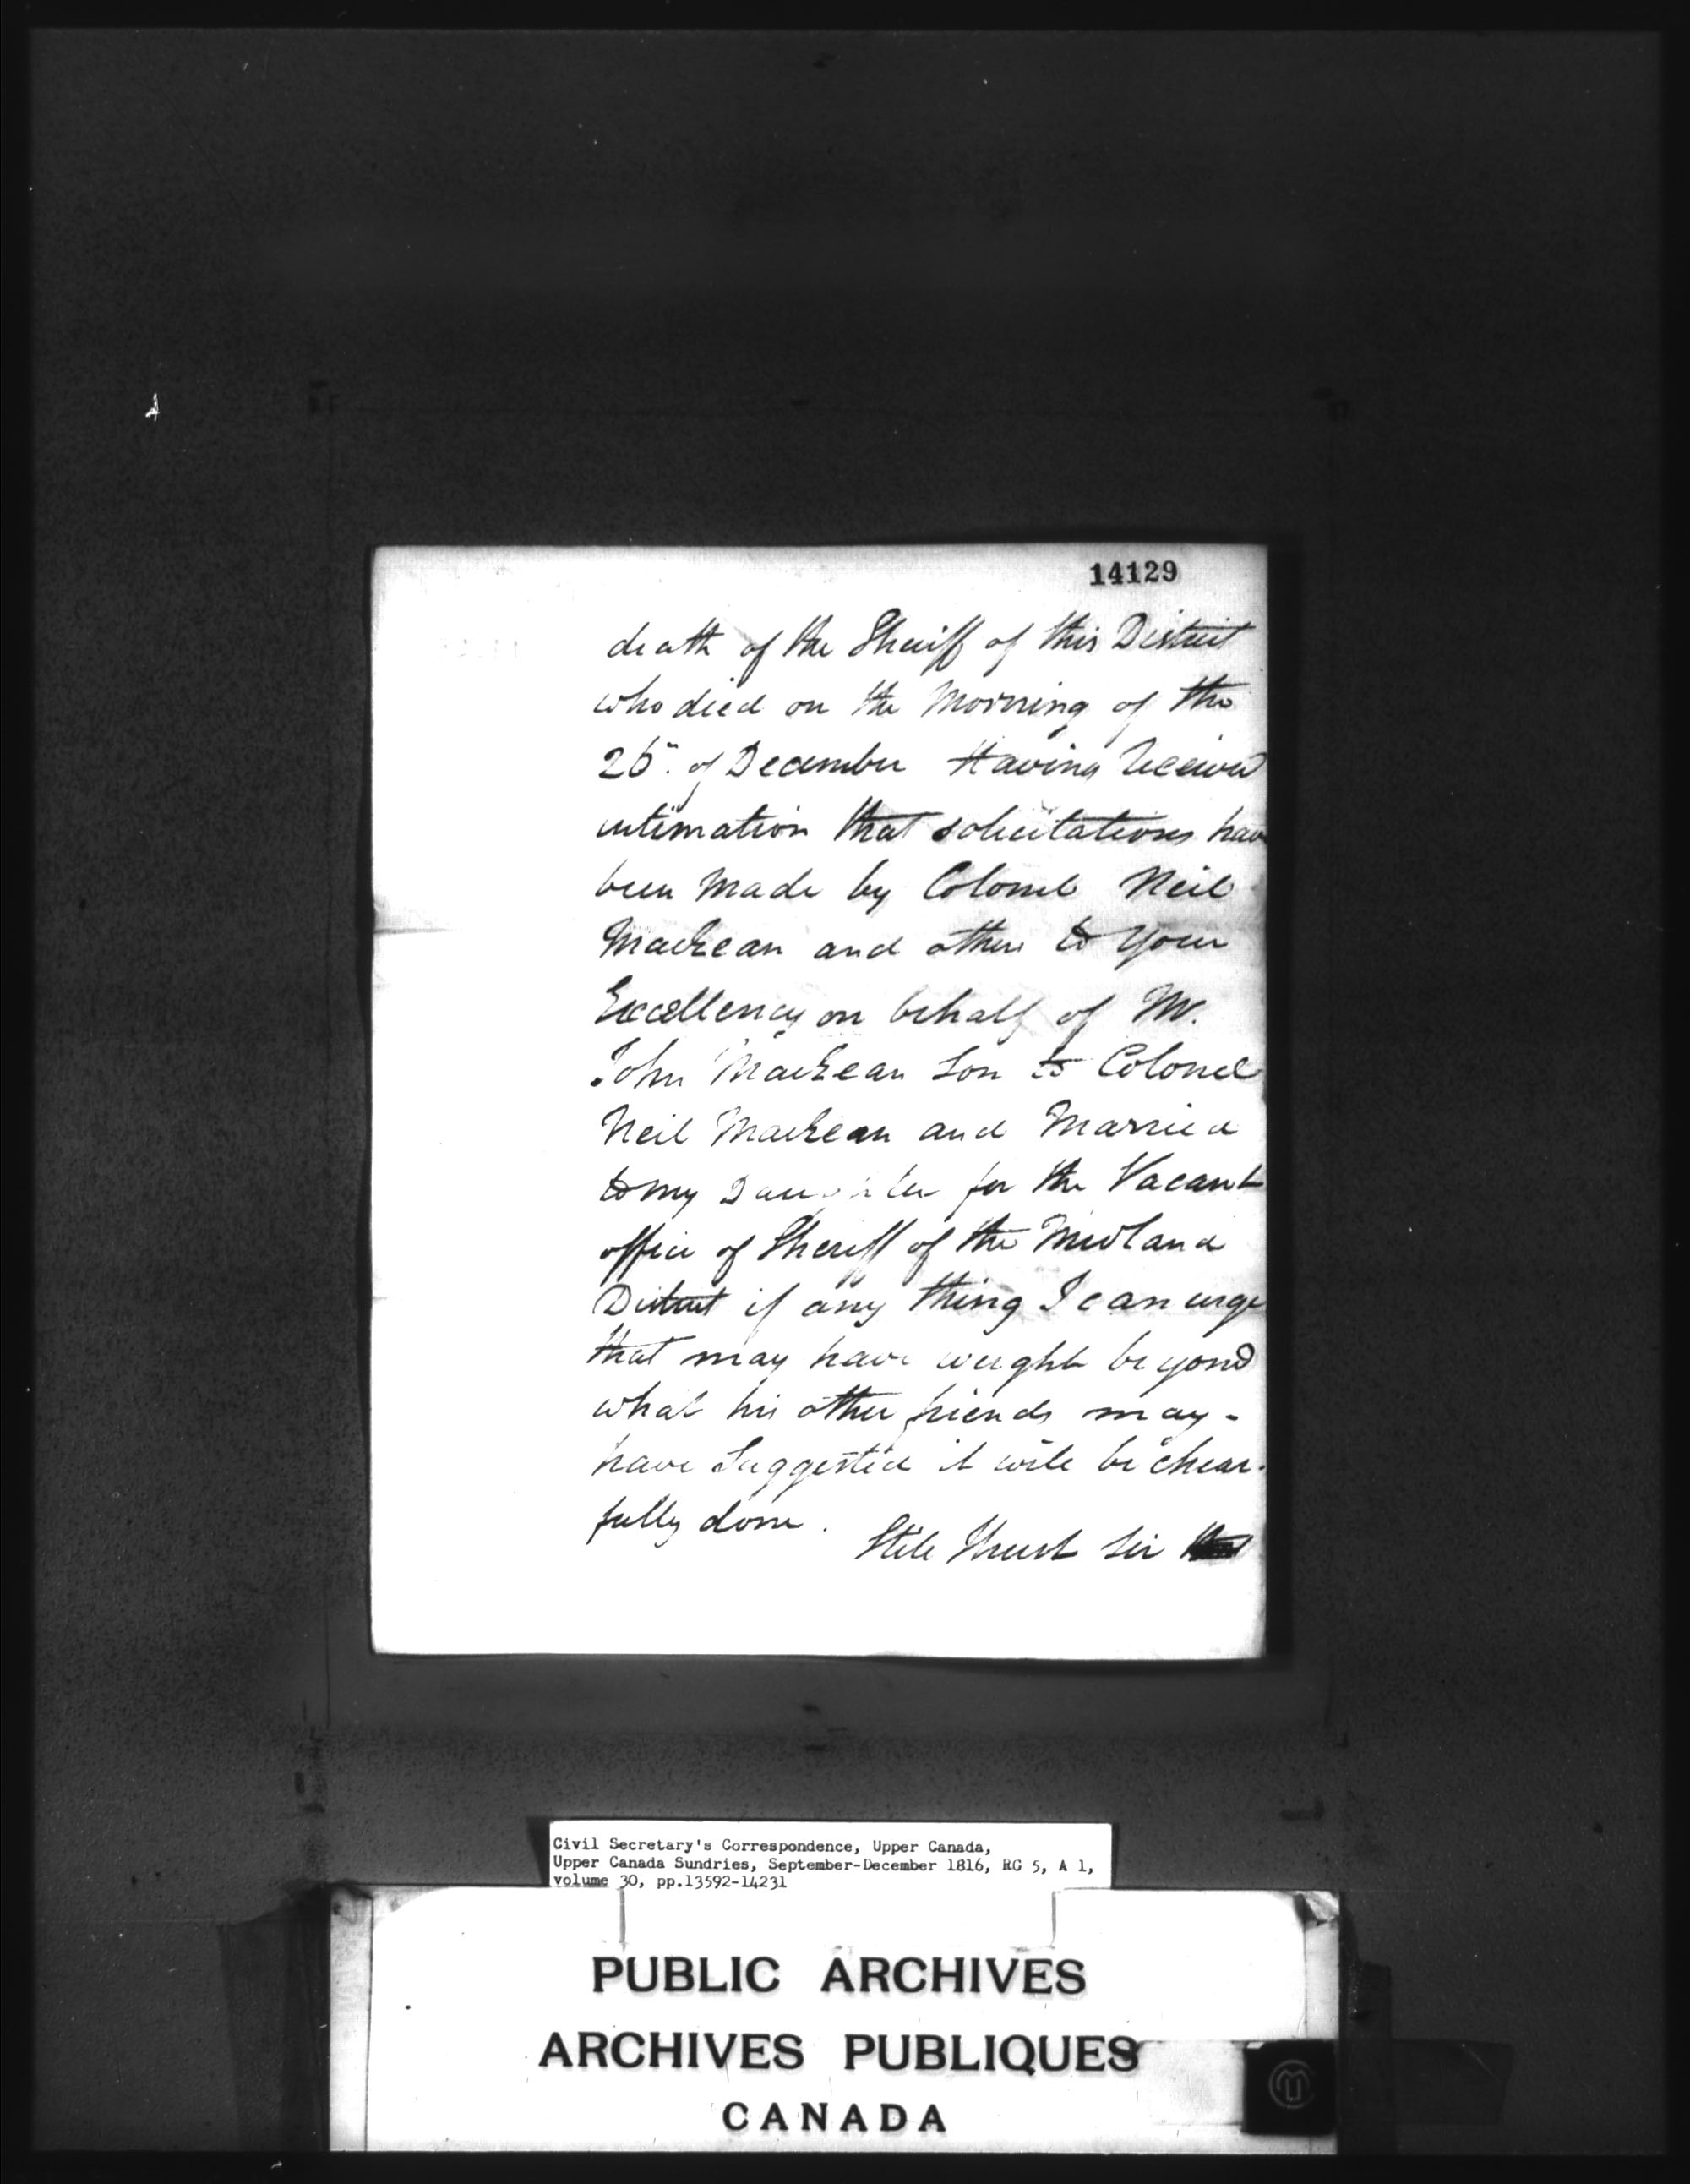 14129
death of the Sheriff of this District
who died on the Morning of the
26th. of December Having Received
intimation that solicitations have
been Made by Colonel Neil
MacLean and others to Your
Excellency on behalf of Mr.
John MacLean Son to Colonel
Neil MacLean and Married
to my Daughter for the Vacant
office of Sheriff of the Midland
District if any thing I can urge
that may have weight beyond
what his other friends may-
have Suggested it will be chear-
fully done.
Still Trust Sir
Civil Secretary's Correspondence, Upper Canada,
Upper Canada Sundries, September-December 1816, RG 5, A 1,
volume 30, pp.13592-14231
PUBLIC ARCHIVES
ARCHIVES PUBLIQUES
CANADA